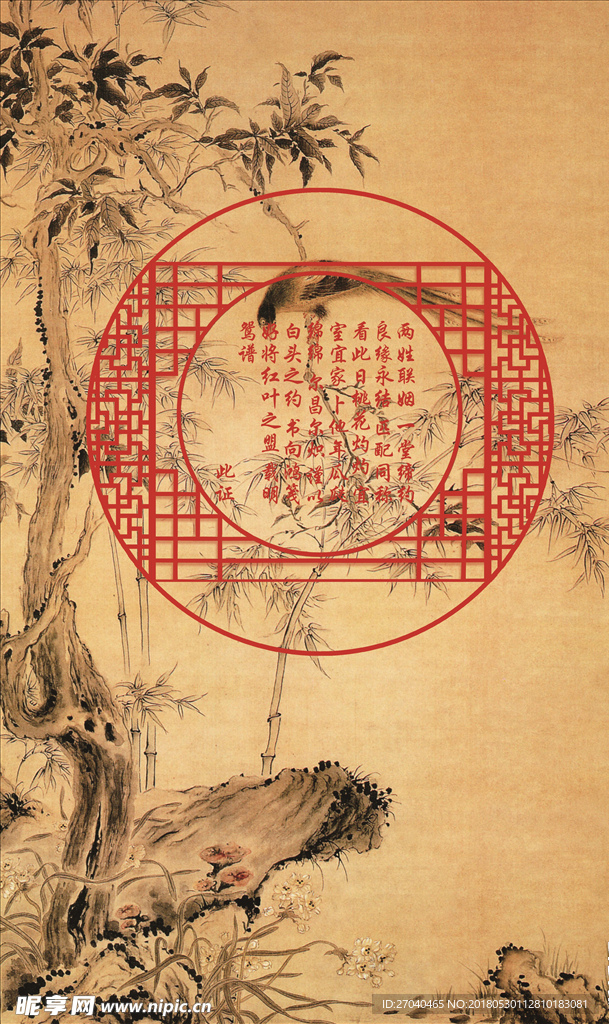 两姓联姻一堂缔约
良缘永结匹配同称
看此日桃花灼灼宜
室宜家卜他年瓜瓞
绵绵 尔昌尔炽谨以
白头之约书向鸿笺
好将红叶之盟载明
鸳谱
此证
昵享网 www.nipic.cn
ID:27040465 NO:20180530112810183081